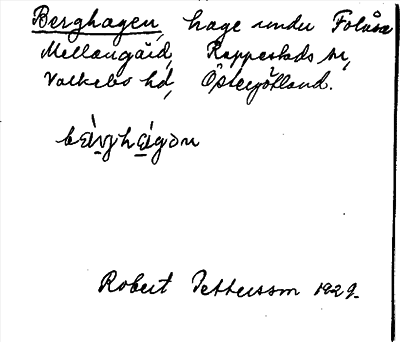 Berghagen, hage under Folåsa
Mellangård, Rappestads sn,
Valkebo hd, Östergötland.
Robert Pettersson 1929.